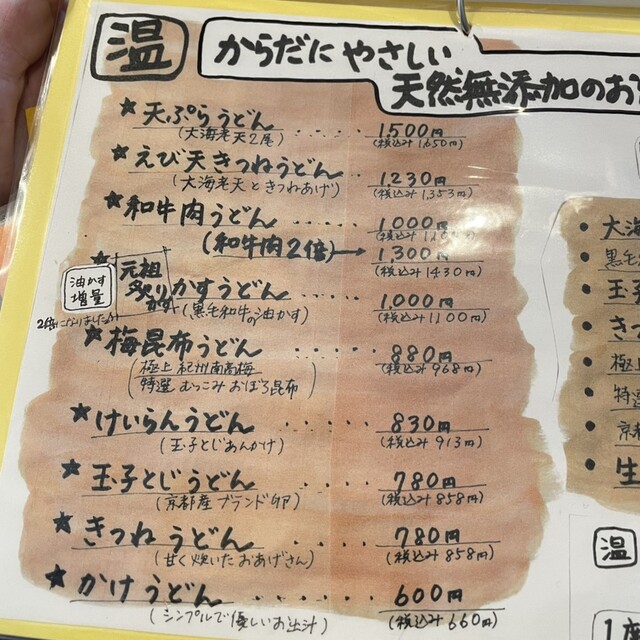 温
からだに やさしい
天然無添加のお
★天ぷらうどん ・・・・・ 1,500円
(大海老天2尾) (税込み1,650円)
★えび天きつねうどん ・・ 1,230円
(大海老天ときつねあげ) (税込み1,353円)
★和牛肉うどん ・・・・・ 1,000円
(和牛肉2倍)→ 1,300円
(税込み1430円)
油かす
増量
2倍になりました
元祖
炙り
かすうどん ・・・・ 1,000円
(黒毛和牛の油かす) (税込み1100円)
★梅昆布うどん ・・・・・ 880円
(極上 紀州南高梅 (税込み968円)
特選 むっこみ おぼろ昆布)
★けいらんうどん ・・・・ 830円
(玉子とじあんかけ) (税込み913円)
★玉子とじうどん ・・・・ 780円
(京都産ブランド卵) (税込み858円)
★きつねうどん ・・・・ 780円
(甘く焚いたおあげさん) (税込み858円)
★かけうどん ・・・・・ 600円
(シンプルで優しいお出汁) (税込み660円)
・大海
・黒毛
・玉子
・きつ
・極上
・特選
・京都
・生
温